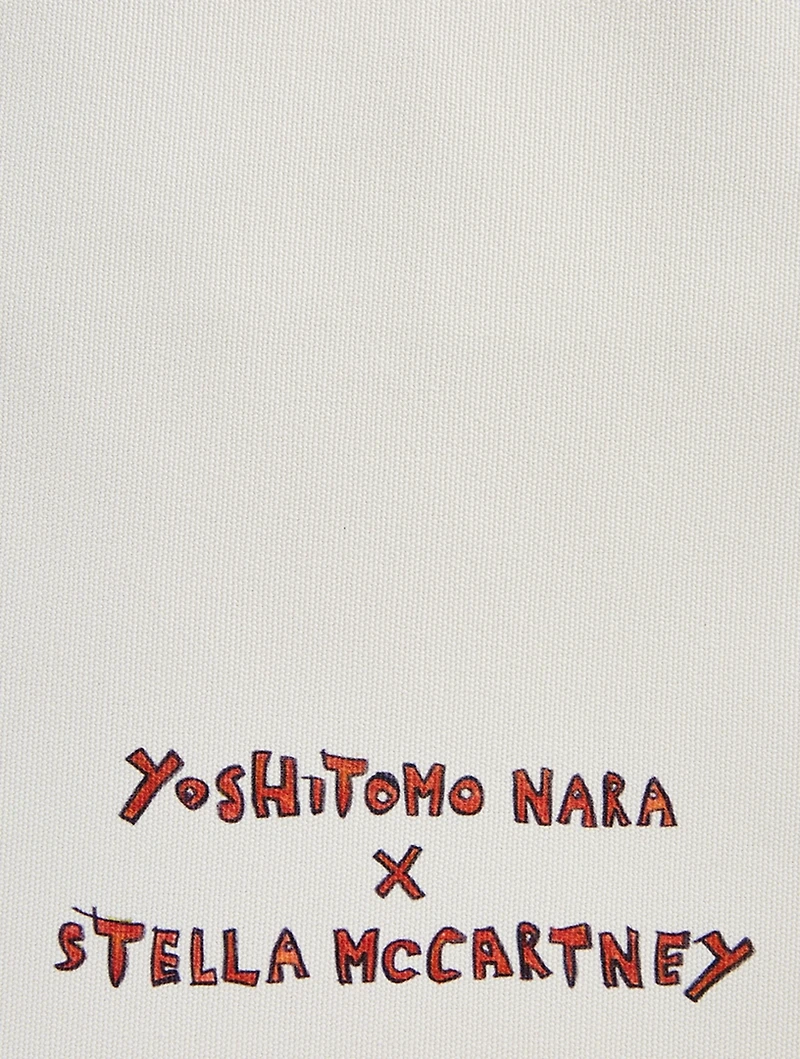 YOSHiTOMO NARA
X
STELLA MCCARTNEY